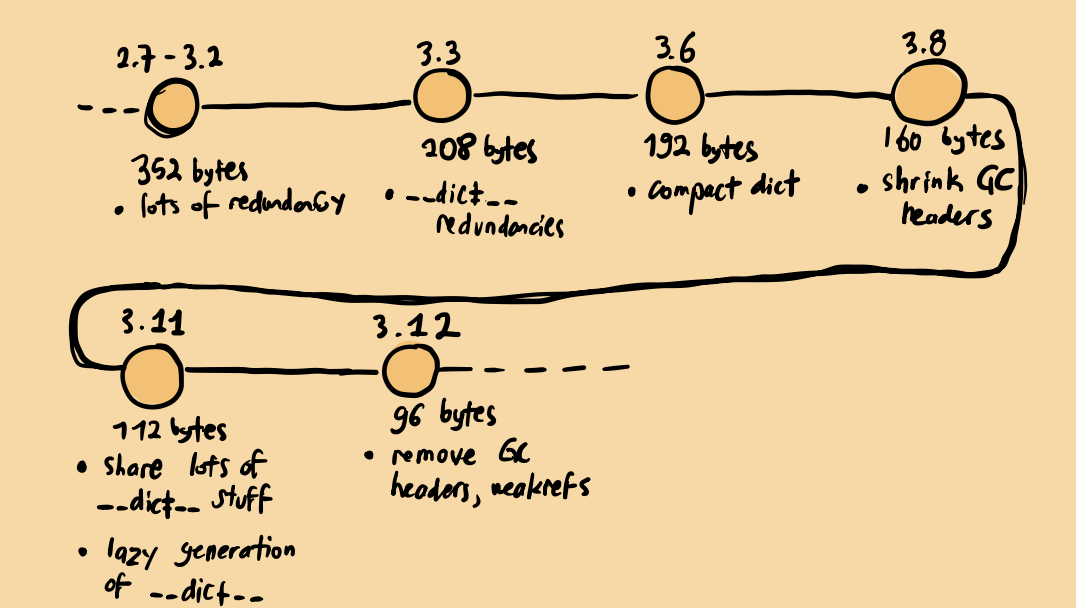 2.7 - 3.2
352 bytes
• lots of redundancy
3.3
208 bytes
• __dict__
redundancies
3.6
192 bytes
• compact dict
3.8
160 bytes
• shrink GC
headers
3.11
112 bytes
• share lots of
__dict__ stuff
• lazy generation
of __dict__
3.12
96 bytes
• remove GC
headers, weakrefs